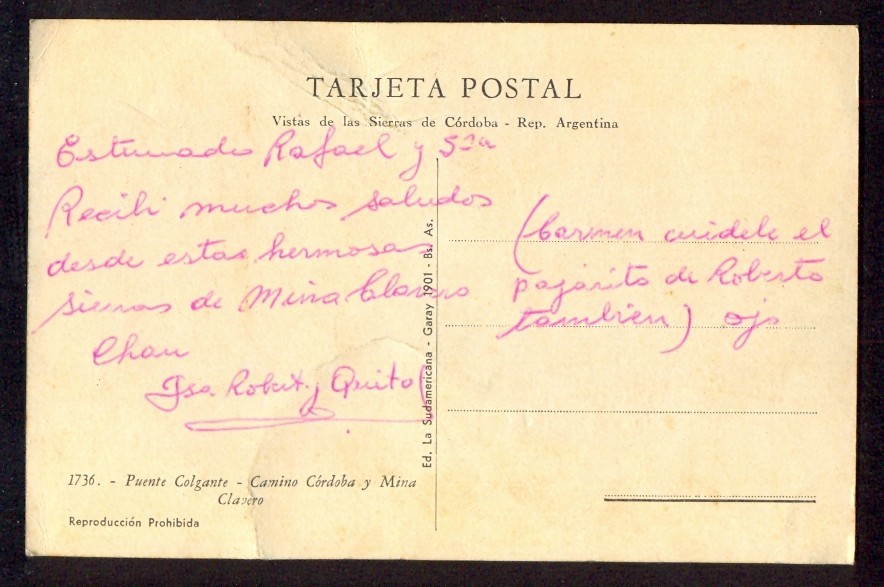 TARJETA POSTAL
Vistas de las Sierras de Córdoba - Rep. Argentina
Estimado Rafael y Sra
Recibi muchos saludos
desde estas hermosas
sierras de Mina Clavero
Chau
Isa. Robert. y Quito
(Carmen cuidele el
pajarito de Roberto
también) ojo
Ed. La Sudamericana - Garay 1901 - Bs. As.
1736. - Puente Colgante - Camino Córdoba y Mina
Clavero
Reproducción Prohibida